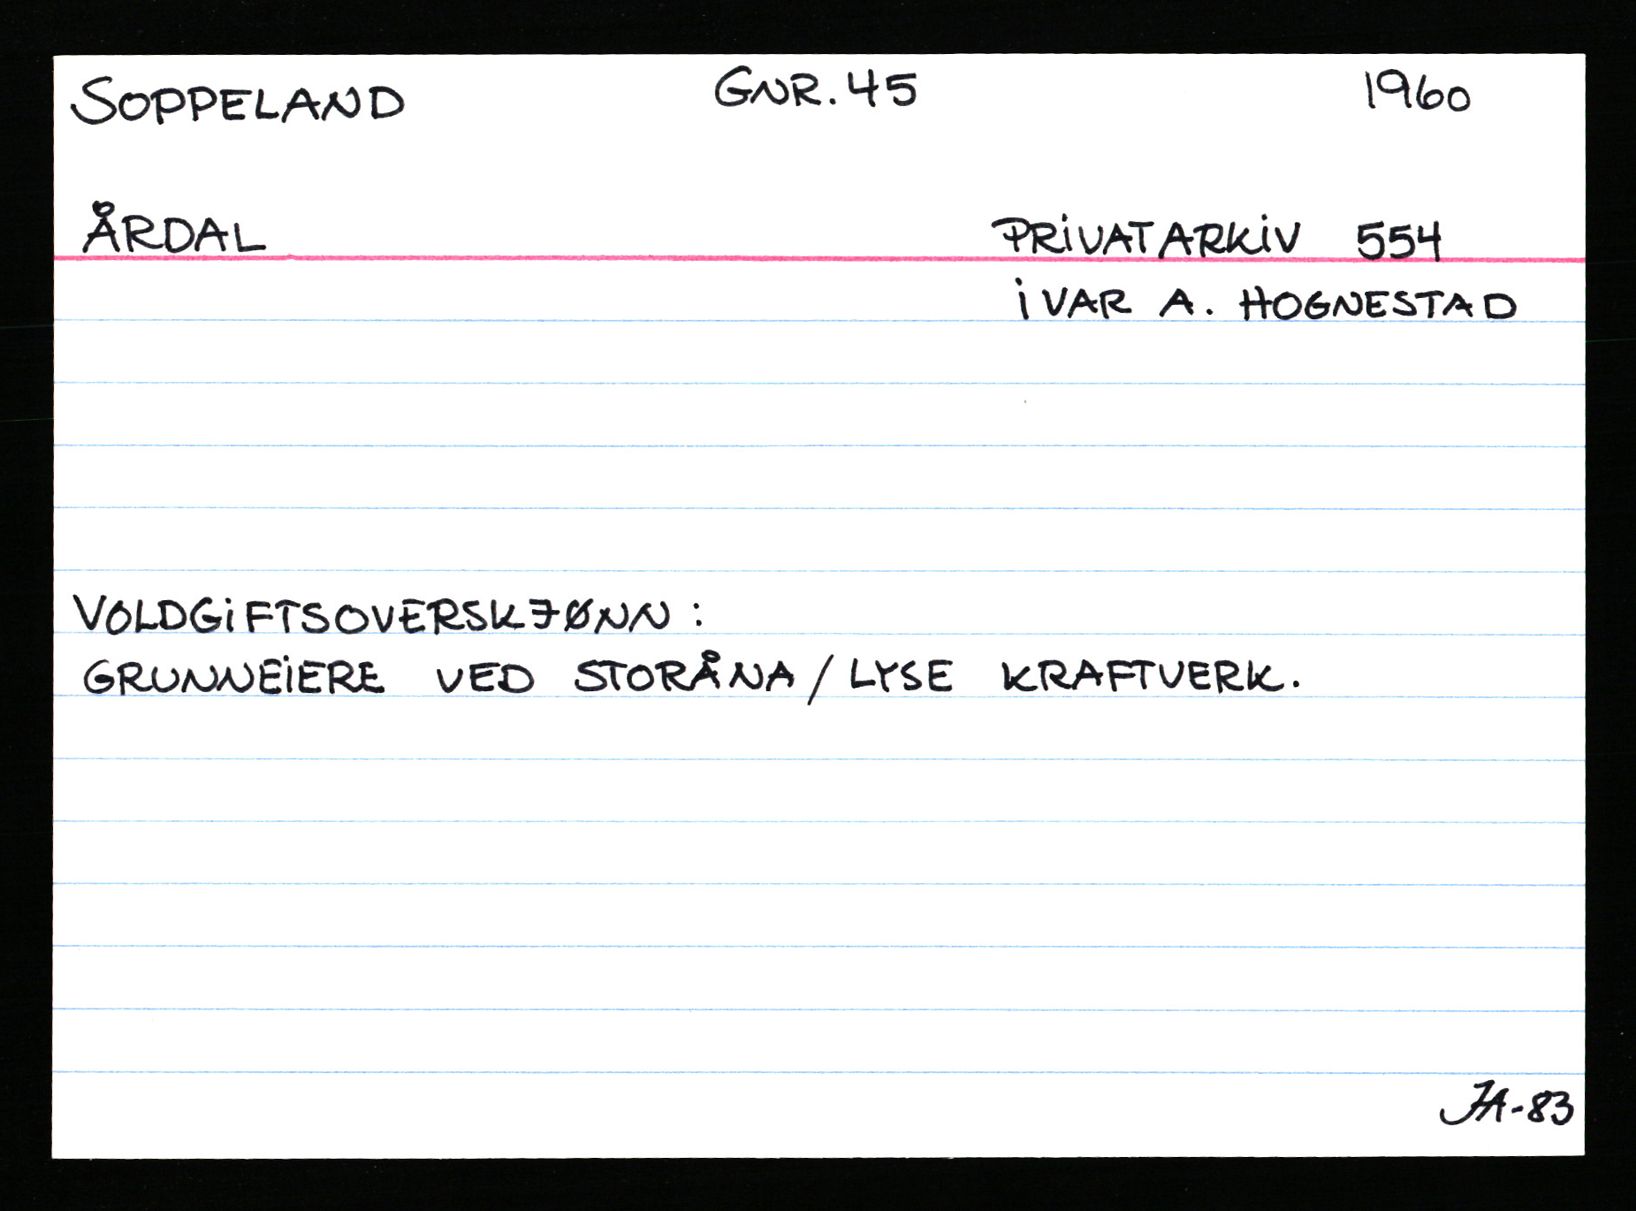 SOPPELAND GNR. 45 1960
ÅRDAL PRIVATARKIV 554
IVAR A. HOGNESTAD
VOLDGIFTSOVERSKJØNN :
GRUNNEIERE VED STORÅNA / LYSE KRAFTVERK.
JA-83